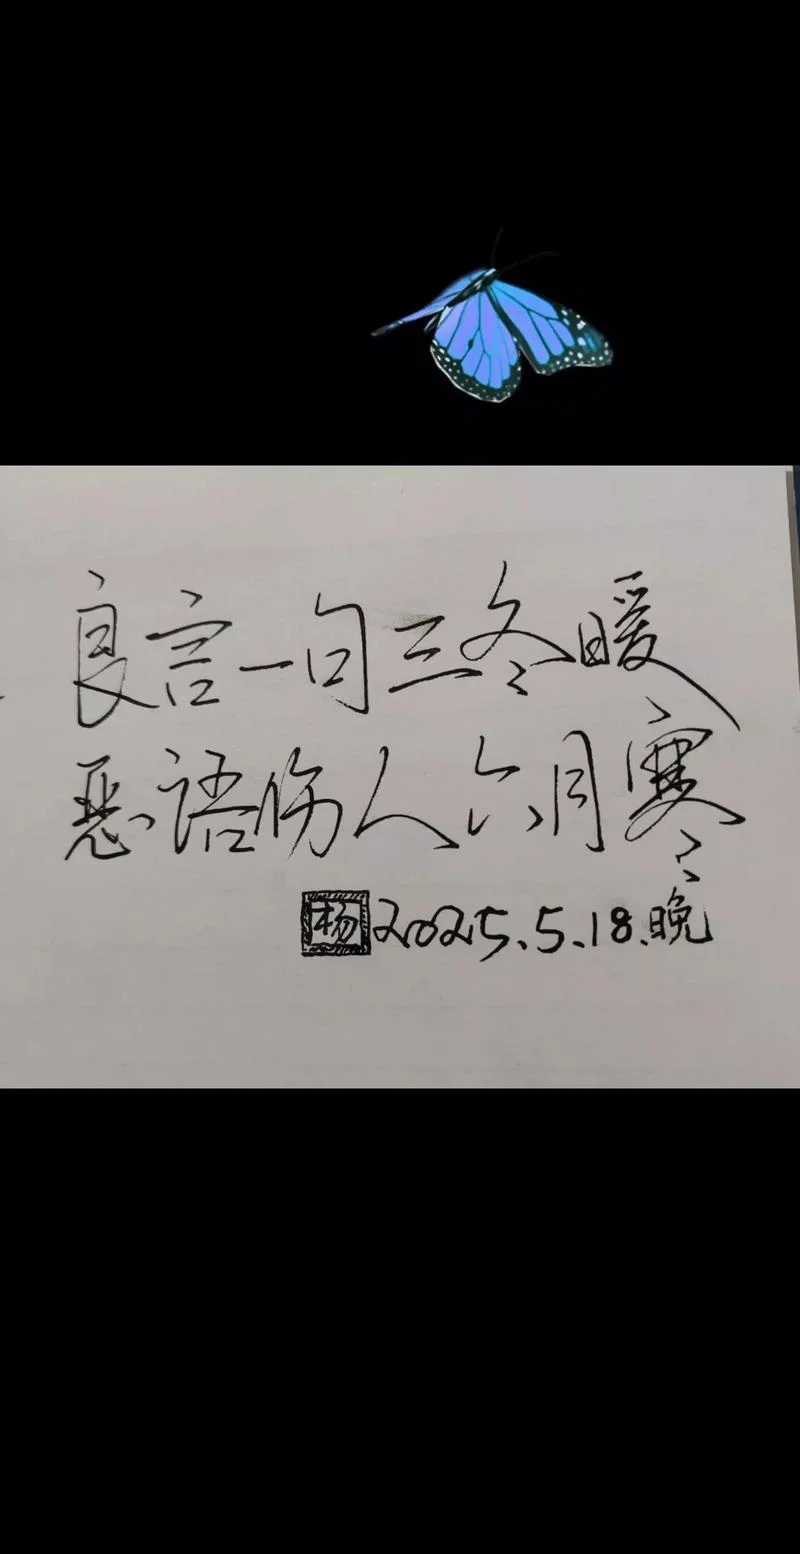 良言一句三冬暖
恶语伤人六月寒
杨 2025.5.18.晚